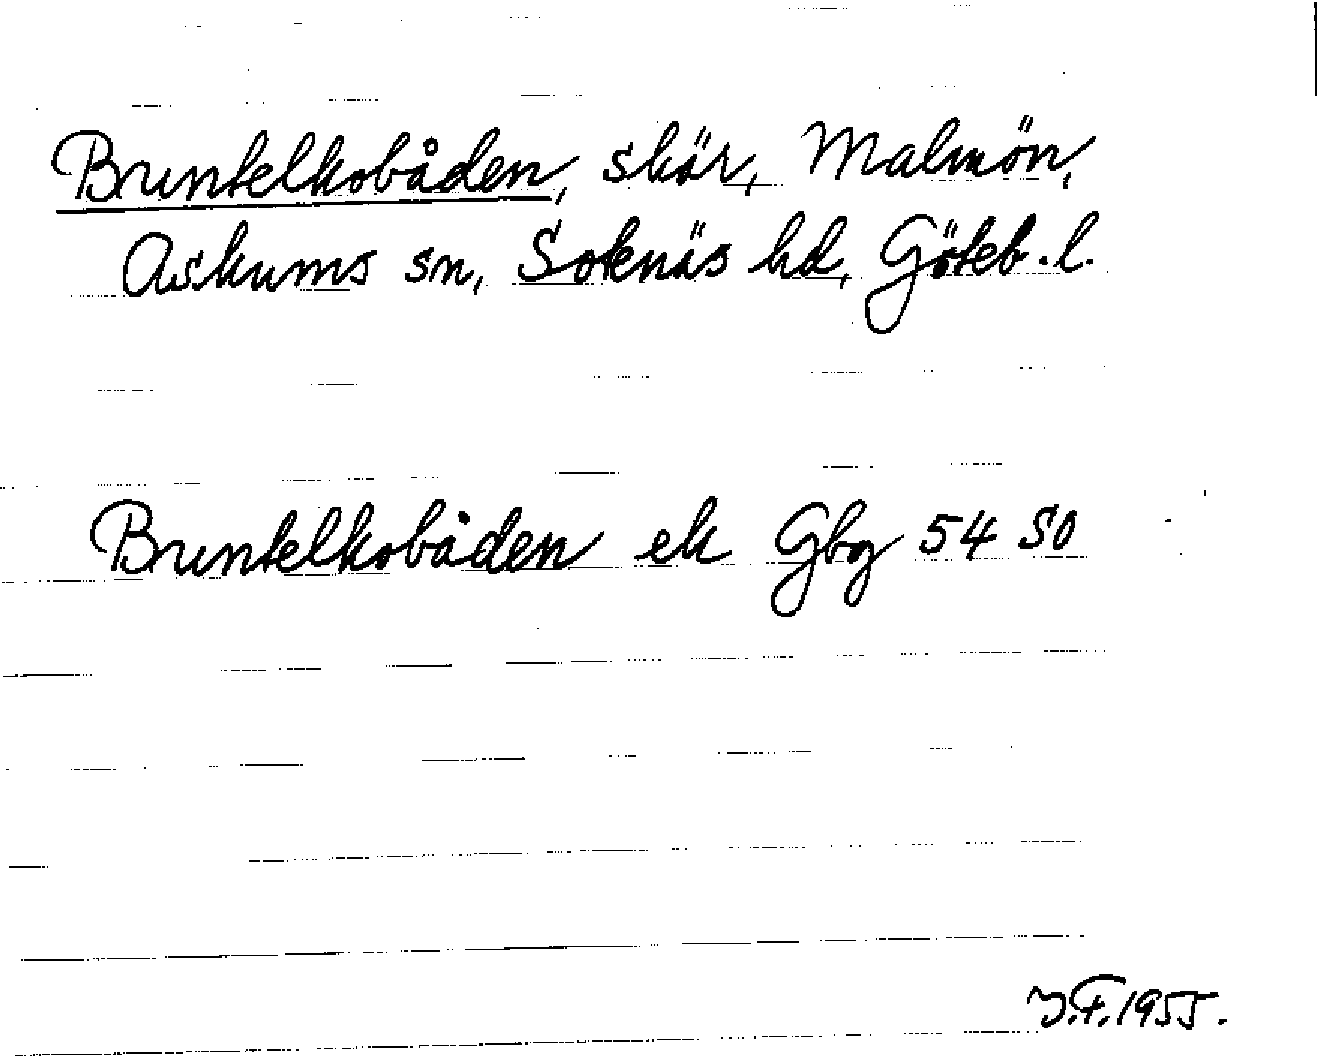 Bruntelkobåden, skär, Malmön,
Askums sn, Sotenäs hd, Göteb. l.
Bruntelkobåden ek Gbg 54 SO
J.F. 1955.